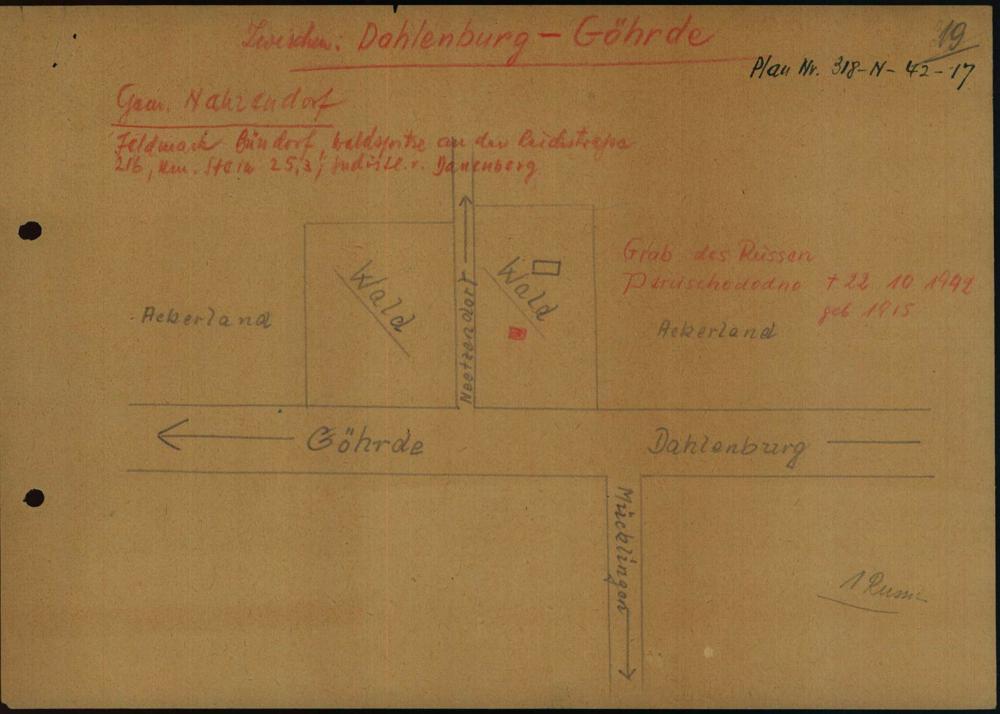 Zwischen: Dahlenburg – Göhrde
19
Plan Nr. 318-N-42-17
Gem. Nahrendorf
Feldmark Bündorf, Waldspitze an der Reichstraße
216, km. Stein 25,3,
Wald
Wald
Neetzendorf
Ackerland
Ackerland
Grab des Russen
† 22 10 1942
geb 1915
Göhrde
Dahlenburg
Mücklingen
1 Russe